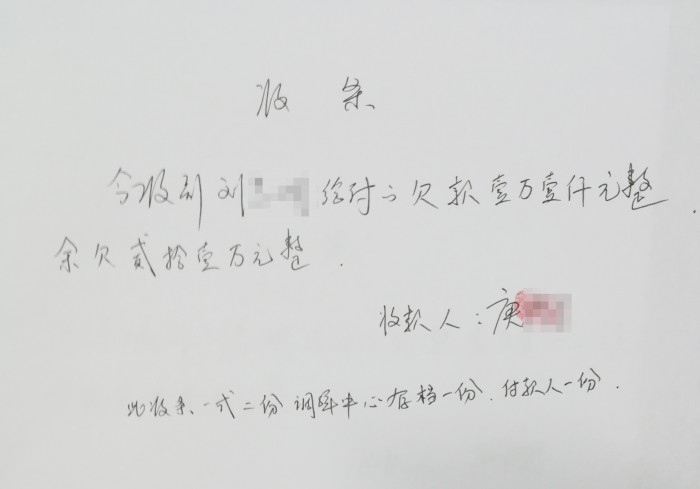 收条
今收到刘 给付之欠款壹万壹仟元整.
余欠贰拾壹万元整.
收款人:庚
此收条、一式二份 调解中心存档一份、付款人一份.